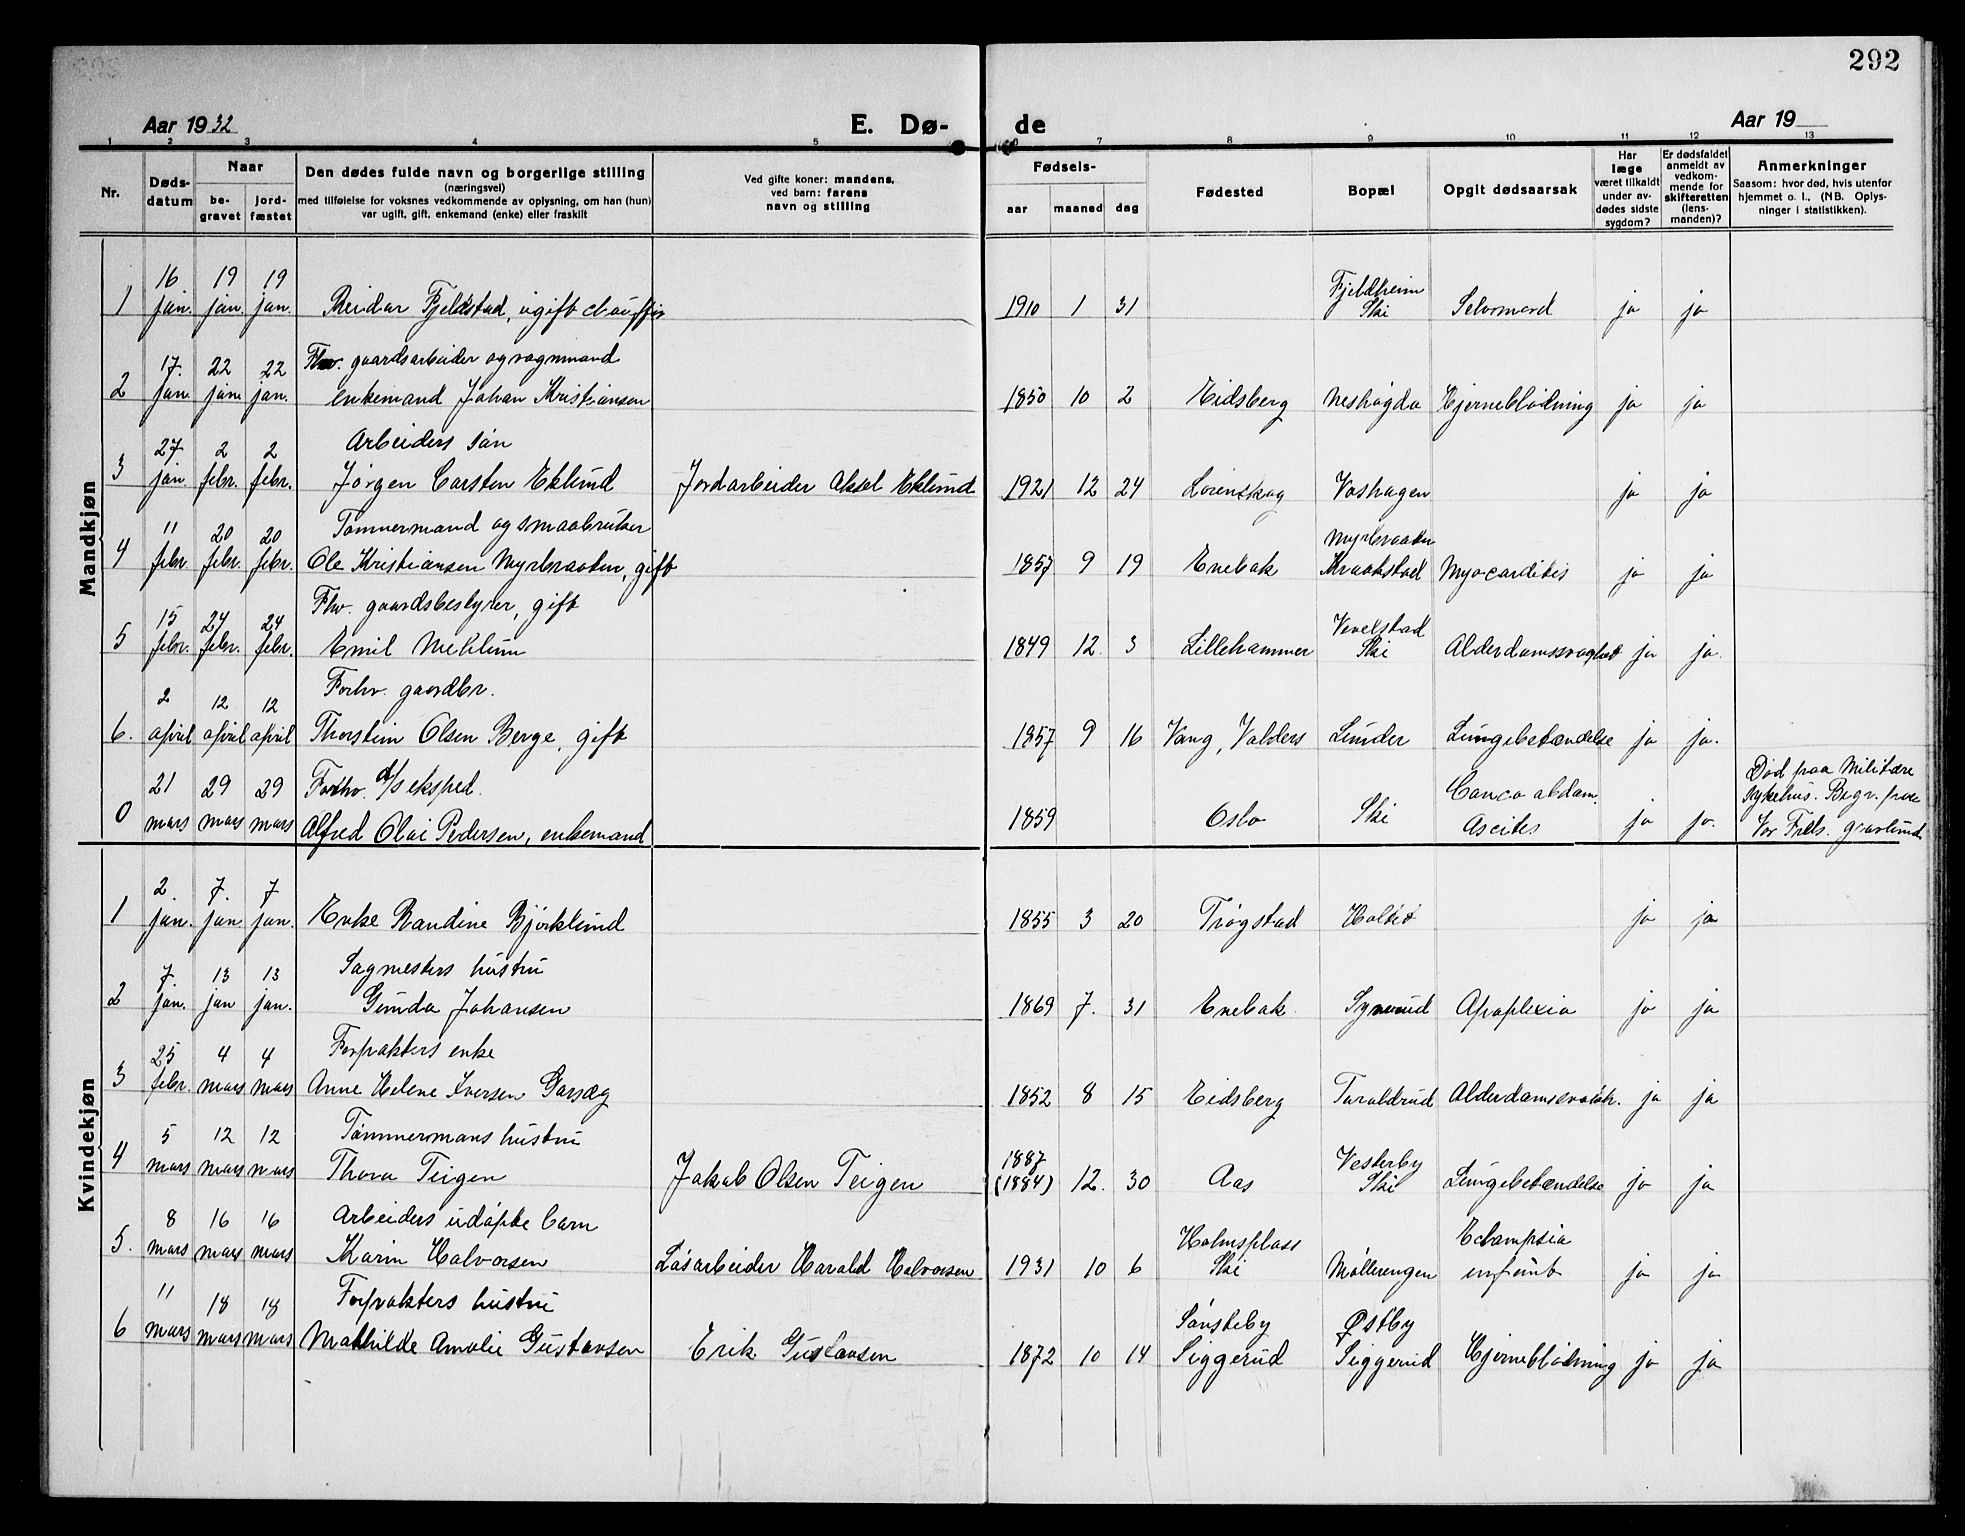 292
Aar 1932
E. Dø-
de
Aar 19
1 2 3 4 5 6 7 8 9 10 11 12 13
Nr.
Døds-
datum
Naar
be-
gravet
jord-
fæstet
Den dødes fulde navn og borgerlige stilling
(næringsvei)
med tilføielse for voksnes vedkommende av oplysning, om han (hun)
var ugift, gift, enkemand (enke) eller fraskilt
Ved gifte koner: mandens,
ved barn: farens
navn og stilling
Fødsels-
aar maaned dag
Fødested
Bopæl
Opgit dødsaarsak
Har
læge
været tilkaldt
under av-
dødes sidste
sygdom?
Er dødsfaldet
anmeldt av
vedkom-
mende for
skifteretten
(lens-
manden)?
Anmerkninger
Saasom: hvor død, hvis utenfor
hjemmet o. l., (NB. Oplys-
ninger i statistikken).
Mandkjøn
16 19 19 Fjeldheim
1 jan. jan. jan. Reidar Fjeldstad, ugift chauffør 1910 1 31 Ski Selvmord ja ja
17. 22 22 Fhv. gaardsarbeider og vognmand
2 jan. jan. jan. enkemand Johan Kristiansen 1850 10 2 Eidsberg Neshøgda Hjerneblødning ja ja
27 2 2 Arbeiders søn
3 jan. febr. febr. Jørgen Carsten Eklund Jordarbeider Aksel Eklund 1921 12 24 Lørenskog Voshagen ja ja
11 20 20 Tømmermand og smaabruker Myrbraaten
4 febr. febr. febr. Ole Kristiansen Myrbraaten, gift 1857 9 19 Enebak Kraakstad Myocarditis ja ja
15 24 24 Fhv. gaardsbestyrer, gift Vevelstad
5 febr. febr. febr. Emil Meklum 1849 12. 3 Lillehammer Ski Alderdomssvaghet ja ja.
2 12 12 Forhv. gaardbr.
6. april april april Thorstein Olsen Berge, gift 1857 9 16 Vang, Valders Lunder Lungebetændelse ja ja.
21 29 29 Forhv. d/s eksped. Canco abdom. Død paa Militære
sykehus. Begr. fra
0 mars mars mars Alfred Olai Pedersen, enkemand 1859 Oslo Ski Ascites ja ja. Vor Frels. gravlund
Kvindekjøn
2. 7. 7
1 jan. jan jan. Enke Randine Bjørklund 1855 3 20 Trøgstad Holtet ja ja
7. 13 13 Sagmesters hustru
2 jan. jan jan. Gunda Johansen 1869 7. 31 Enebak Apoplexia ja ja
25 4 4 Forpakters enke
3 febr. mars mars Anne Helene Iversen Garsæg 1852 8 15 Eidsberg Taraldrud Alderdomssvakh. ja ja
5 12 12 Tømmermans hustru 1887 Vesterby
4 mars mars mars Thora Teigen Jakob Olsen Teigen (1884) 12. 30 Aas Ski Lungebetændelse ja ja
8 16 16 Arbeiders udøpte barn Holmsplass Eclampsia
5. mars mars mars Karin Halvorsen Løsarbeider Harald Halvorsen 1931 10 6 Ski Møllerengen infant ja ja
11 18 18 Forpakters hustru Sønsteby Østby
6 mars mars mars Mathilde Amalie Gustavsen Erik Gustavsen 1872 10 14 Siggerud Siggerud Hjerneblødning ja ja